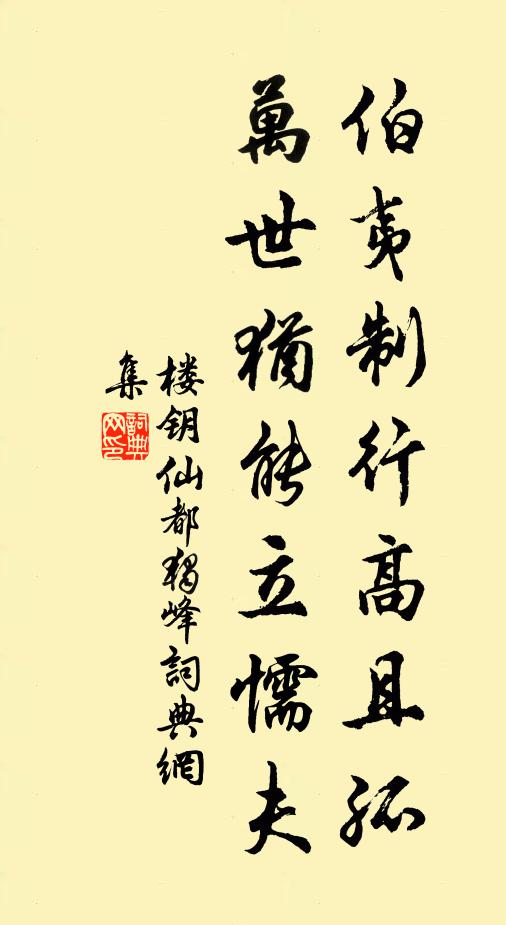 伯夷制行高且孤
萬世猶能立懦夫
楼钥仙都獨峰詞典網
集
詞典
网印